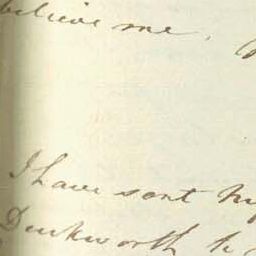 believe me,
I have sent my
Duckworth to